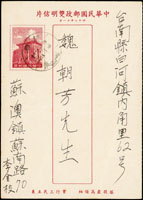 中華民國郵政雙明信片
台南縣白河鎮內角里62号
魏朝芳先生
蘇澳鎮蘇南路70